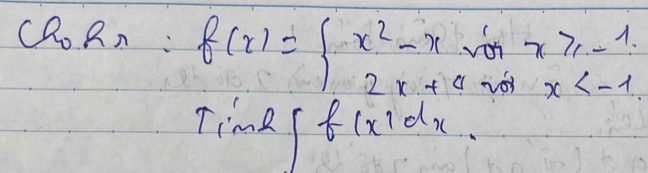 Cho hs : f(x) = { x² - x với x ≥ -1.
2x + 4 với x < -1
Tính ∫ f(x)dx.